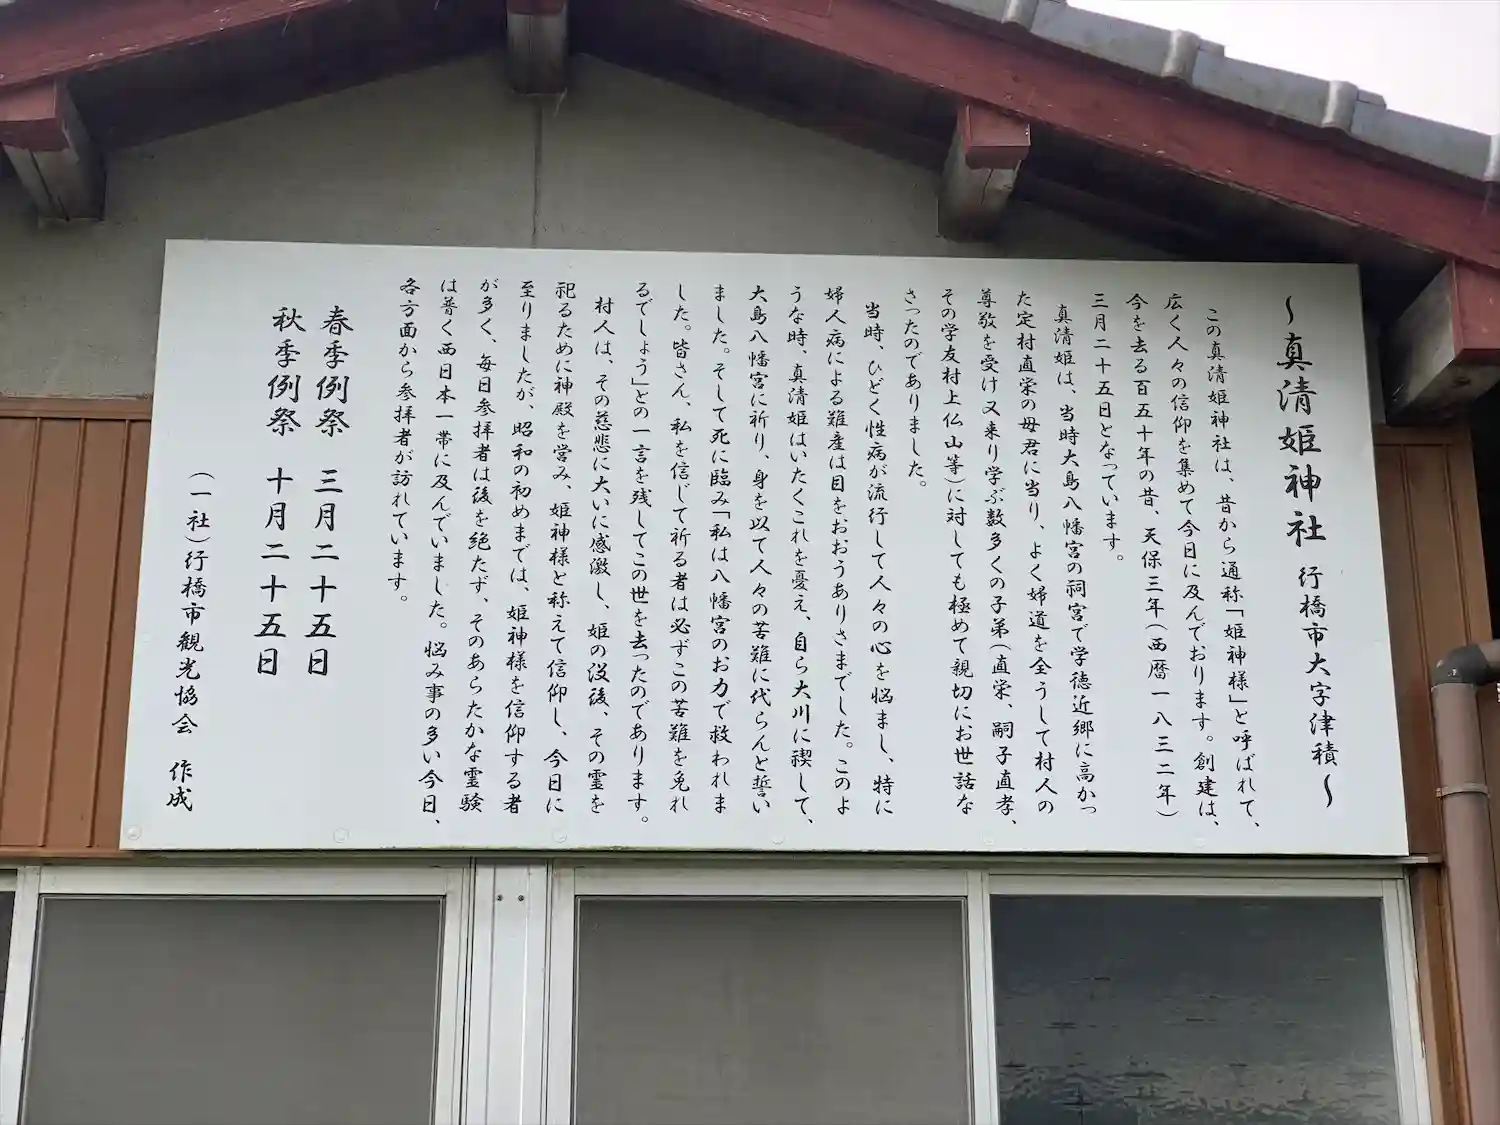 ～真清姫神社 行橋市大字津積～
この真清姫神社は、昔から通称「姫神様」と呼ばれて、
広く人々の信仰を集めて今日に及んでおります。創建は、
今を去る百五十年の昔、天保三年(西暦一八三二年)
三月二十五日となっています。
真清姫は、当時大島八幡宮の祠宮で学徳近郷に高かっ
た定村直栄の母君に当り、よく婦道を全うして村人の
尊敬を受け又来り学ぶ数多くの子弟(直栄、嗣子直孝、
その学友村上仏山等)に対しても極めて親切にお世話な
さったのでありました。
当時、ひどく性病が流行して人々の心を悩まし、特に
婦人病による難産は目をおおうありさまでした。このよ
うな時、真清姫はいたくこれを憂え、自ら大川に禊して、
大島八幡宮に祈り、身を以て人々の苦難に代らんと誓い
ました。そして死に臨み「私は八幡宮のお力で救われま
した。皆さん、私を信じて祈る者は必ずこの苦難を免れ
るでしょう」との一言を残してこの世を去ったのであります。
村人は、その慈悲に大いに感激し、姫の没後、その霊を
祀るために神殿を営み、姫神様と称えて信仰し、今日に
至りましたが、昭和の初めまでは、姫神様を信仰する者
が多く、毎日参拝者は後を絶たず、そのあらたかな霊験
は普く西日本一帯に及んでいました。悩み事の多い今日、
各方面から参拝者が訪れています。
春季例祭 三月二十五日
秋季例祭 十月二十五日
(一社)行橋市観光協会 作成